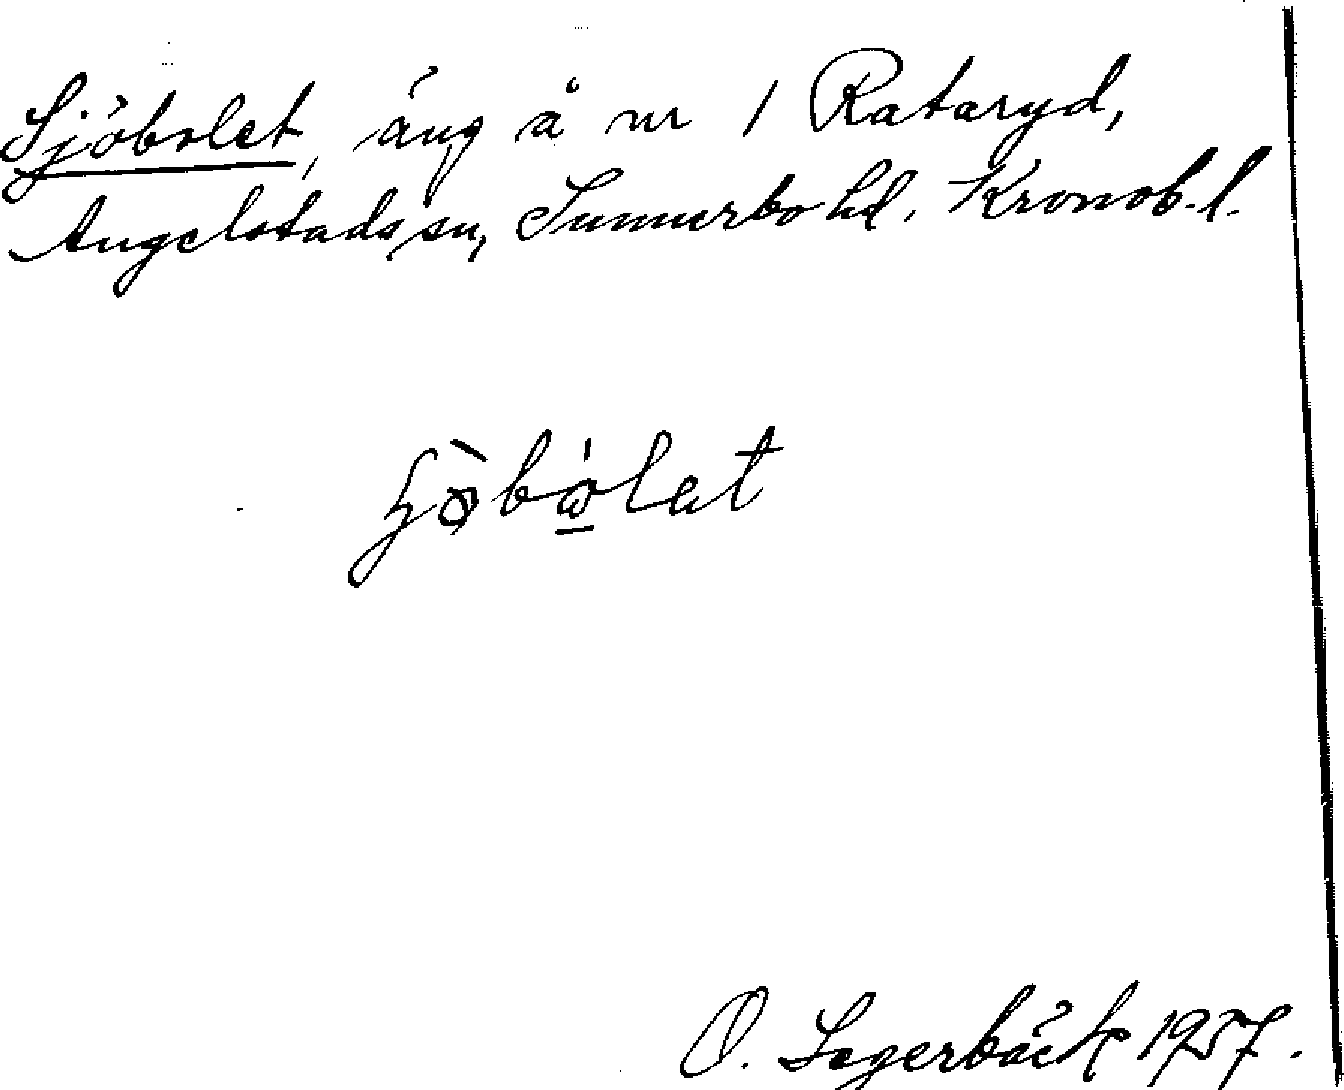 Sjöbolet, äng å nr 1 Rataryd,
Angelstads sn, Sunnerbo hd. Kronob. l.
ɧø̀bɷ́lət
O. Lagerbäck 1957.